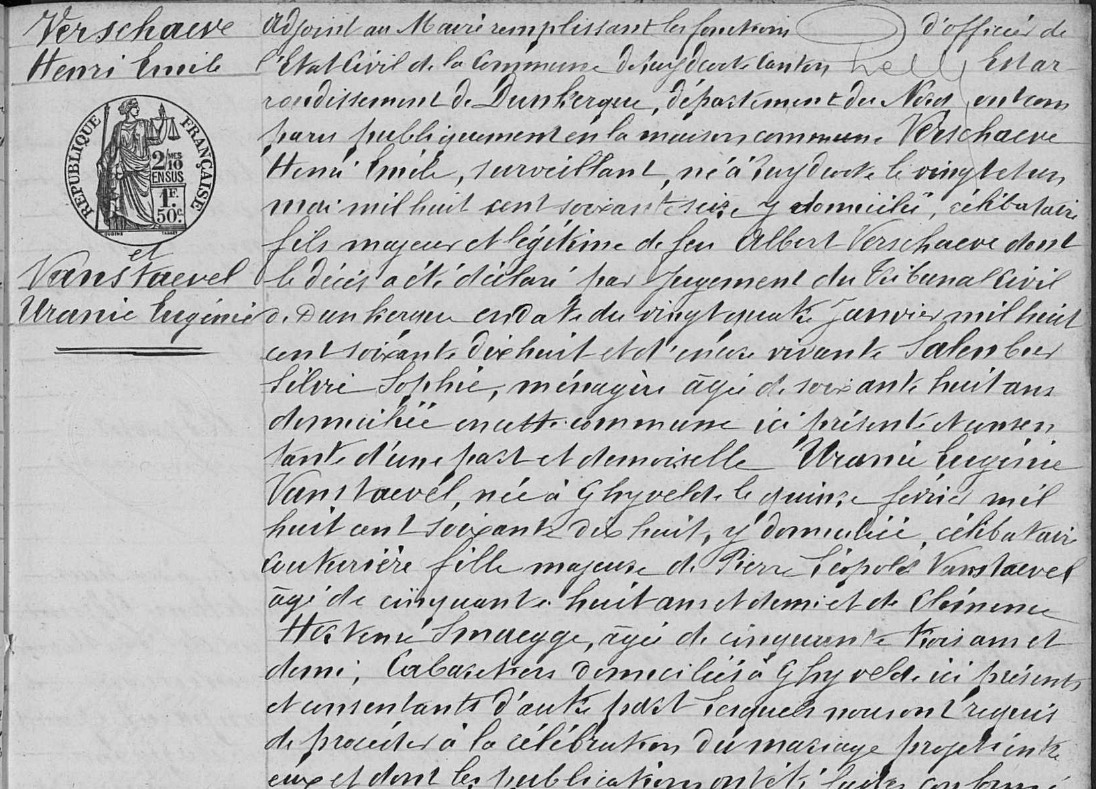 Verschaeve
Henri Emile
RÉPUBLIQUE FRANÇAISE
2 MES
10
EN SUS
1F.
50c.
et
Vanstaevel
Uranie Eugénie
Adjoint au Maire remplissant les fonctions d'officier de
l'Etat Civil de la Commune de Zuydcoote Canton Est ar-
rondissement de Dunkerque, département du Nord, ont com
paru publiquement en la maison commune Verschaeve
Henri Emile, surveillant, né à Zuydcoote le vingt et un
mai mil huit cent soixante seize y domicilié, célibataire
fils majeur et légitime de feu Albert Verschaeve dont
le décès a été déclaré par Jugement du Tribunal Civil
de Dunkerque en date du vingt quatre Janvier mil huit
cent soixante dix huit et d'encore vivante Salembier
Silvie Sophie, ménagère âgée de soixante huit ans
domiciliée en cette commune ici présente et consen
tante d'une part et demoiselle Uranie Eugénie
Vanstaevel, née à Ghyvelde le quinze février mil
huit cent soixante dix huit, y domiciliée, célibataire
couturière fille majeure de Pierre Léopold Vanstaevel
âgé de cinquante huit ans et demi et de Clémence
Hortense Smaegge, âgée de cinquante trois ans et
demi, Cabaretiers domiciliés à Ghyvelde ici présents
et consentants d'autre part Lesquels nous ont requis
de procéder à la célébration du mariage projeté entre
eux et dont les publications ont été faites conformé